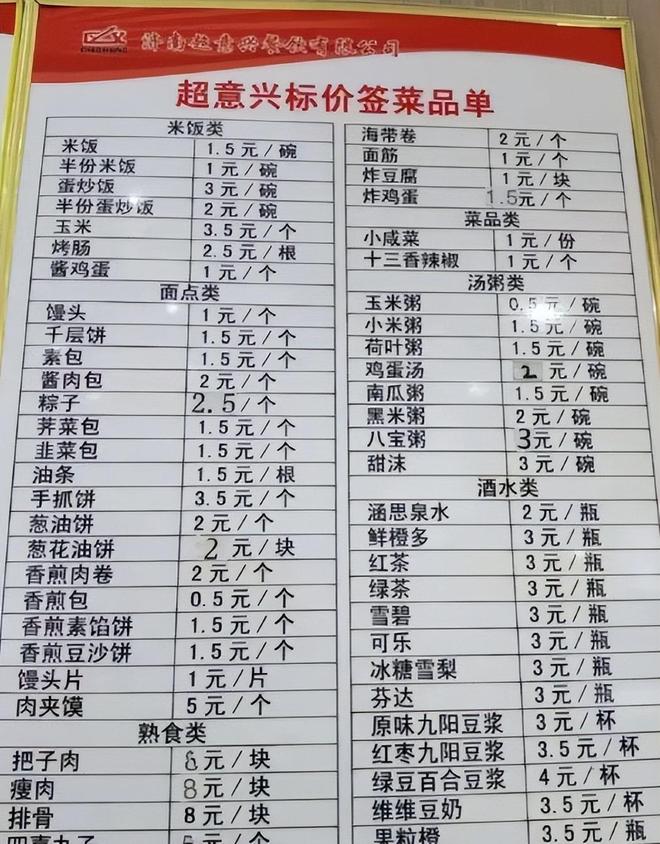 济南超意兴餐饮有限公司
超意兴标价签菜品单
米饭类
米饭 1.5元/碗
半份米饭 1元/碗
蛋炒饭 3元/碗
半份蛋炒饭 2元/碗
玉米 3.5元/个
烤肠 2.5元/根
酱鸡蛋 1元/个
面点类
馒头 1元/个
千层饼 1.5元/个
素包 1.5元/个
酱肉包 2元/个
粽子 2.5/个
荠菜包 1.5元/个
韭菜包 1.5元/个
油条 1.5元/根
手抓饼 3.5元/个
葱油饼 2元/个
葱花油饼 2元/块
香煎肉卷 2元/个
香煎包 0.5元/个
香煎素馅饼 1.5元/个
香煎豆沙饼 1.5元/个
馒头片 1元/片
肉夹馍 5元/个
熟食类
把子肉 8元/块
瘦肉 8元/块
排骨 8元/块
四喜丸子 元/个
海带卷 2元/个
面筋 1元/个
炸豆腐 1元/块
炸鸡蛋 1.5元/个
菜品类
小咸菜 1元/份
十三香辣椒 1元/个
汤粥类
玉米粥 0.5元/碗
小米粥 1.5元/碗
荷叶粥 1.5元/碗
鸡蛋汤 2元/碗
南瓜粥 1.5元/碗
黑米粥 2元/碗
八宝粥 3元/碗
甜沫 3元/碗
酒水类
涵思泉水 2元/瓶
鲜橙多 3元/瓶
红茶 3元/瓶
绿茶 3元/瓶
雪碧 3元/瓶
可乐 3元/瓶
冰糖雪梨 3元/瓶
芬达 3元/瓶
原味九阳豆浆 3元/杯
红枣九阳豆浆 3.5元/杯
绿豆百合豆浆 4元/杯
维维豆奶 3.5元/杯
果粒橙 3.5元/瓶